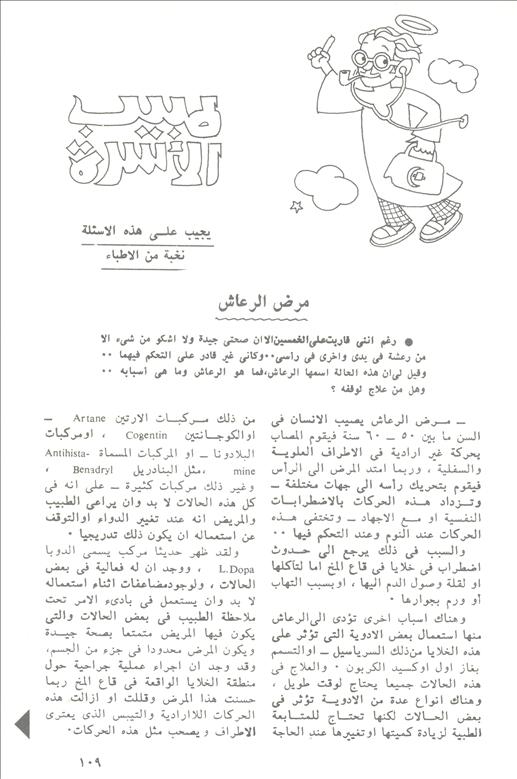 طبيب
الأسرة
يجيب علـى هذه الاسئلة
نخبة من الاطباء
مرض الرعاش
● رغم انني قاربت على الخمسين الا ان صحتي جيدة ولا اشكو من شيء الا
من رعشة في يدى واخرى في رأسى ٠٠ وكأني غير قادر على التحكم فيهما ٠٠
وقيل لى ان هذه الحالة اسمها الرعاش، فما هو الرعاش وما هى أسبابه ٠٠
وهل من علاج لوقفه ؟
ــ مـرض الرعاش يصيب الانسان فى
السن ما بين ٥٠ ــ ٦٠ سنة فيقوم المصاب
بحركة غير ارادية فى الاطراف العلويـة
والسفلية ، وربما امتد المرض الى الرأس
فيقوم بتحريك رأسه الى جهات مختلفة ــ
وتـزداد هـذه الحركات بالاضطرابـات
النفسية او مـع الاجهاد ــ وتختفى هـذه
الحركات عند النوم وعند التحكم فيها ٠٠
والسبب فى ذلك يرجع الى حـدوث
اضطراب فى خلايا فى قاع المخ اما لتآكلها
او لقلة وصول الدم اليها ، او بسبب التهاب
أو ورم بجوارها ٠
وهناك اسباب اخرى تؤدى الى الرعاش
منها استعمال بعض الادوية التى تؤثر على
هذه الخلايا من ذلك السرباسيل ــ او التسمم
بغاز اول اوكسيد الكربون ٠ والعلاج فى
هذه الحالات جميعا يحتاج لوقت طويل ،
وهناك انواع عدة من الادويـة تؤثر فى
بعض الحالات لكنها تحتـاج للمتـابعة
الطبية لزيادة كميتها او تغييرها عند الحاجة
من ذلك مـركبـات الارتين Artane ــ
او الكوجـانتين Cogentin ، او مركبات
البلادونا ــ او المركبات المسماة Antihista-
mine ، مثل البنادريل Benadryl ،
وغير ذلك مركبات كثيرة ــ على انه فى
كل هذه الحالات لا بد وان يراعى الطبيب
والمريض انه عند تغيير الدواء او التوقف
عن استعماله ان يكون ذلك تدريجيا ٠
ولقد ظهر حديثا مركب يسمى الدوبا
L.Dopa ، ووجد ان له فعالية فى بعض
الحالات ، ولوجود مضاعفات اثناء استعماله
لا بد وان يستعمل فى بادىء الامر تحت
ملاحظة الطبيب فى بعض الحالات والتى
يكون فيها المريض متمتعا بصحة جيـدة
ويكون المرض محدودا فى جزء من الجسم،
وقد وجد ان اجراء عملية جراحية حول
منطقة الخلايا الواقعة فى قاع المخ ربما
حسنت هذا المرض وقللت او ازالت هذه
الحركات اللاارادية والتيبس الذى يعترى
الاطراف ويصحب مثل هذه الحركات٠
١٠٩